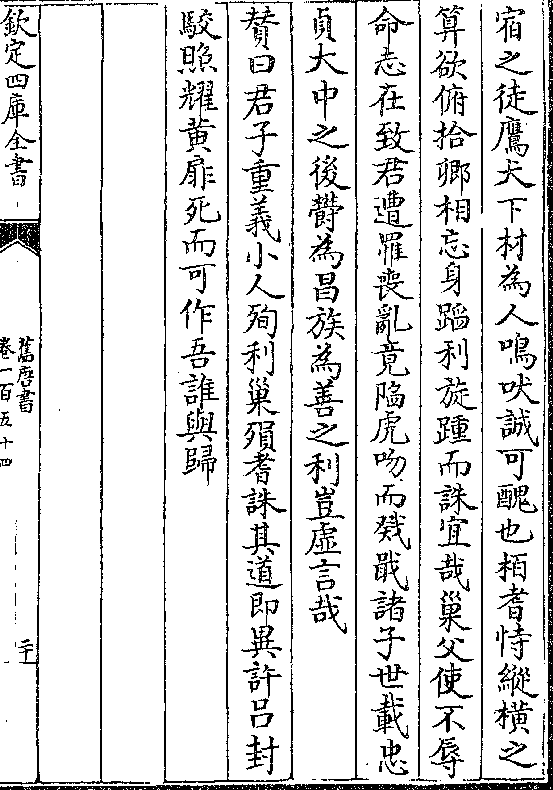 宿之徒鷹犬下材為人鳴吠誠可醜也栢耆恃縱橫之
算欲俯拾卿相忘身蹈利旋踵而誅宜哉巢父使不辱
命志在致君遭罹喪亂竟陷虎吻而㦸戢諸子世載忠
貞大中之後欝為昌族為善之利豈虛言哉
賛曰君子重義小人殉利巢殞耆誅其道即異許吕封
駮照耀黄扉死而可作吾誰與歸
欽定四庫全書
舊唐書
卷一百五十四
二十